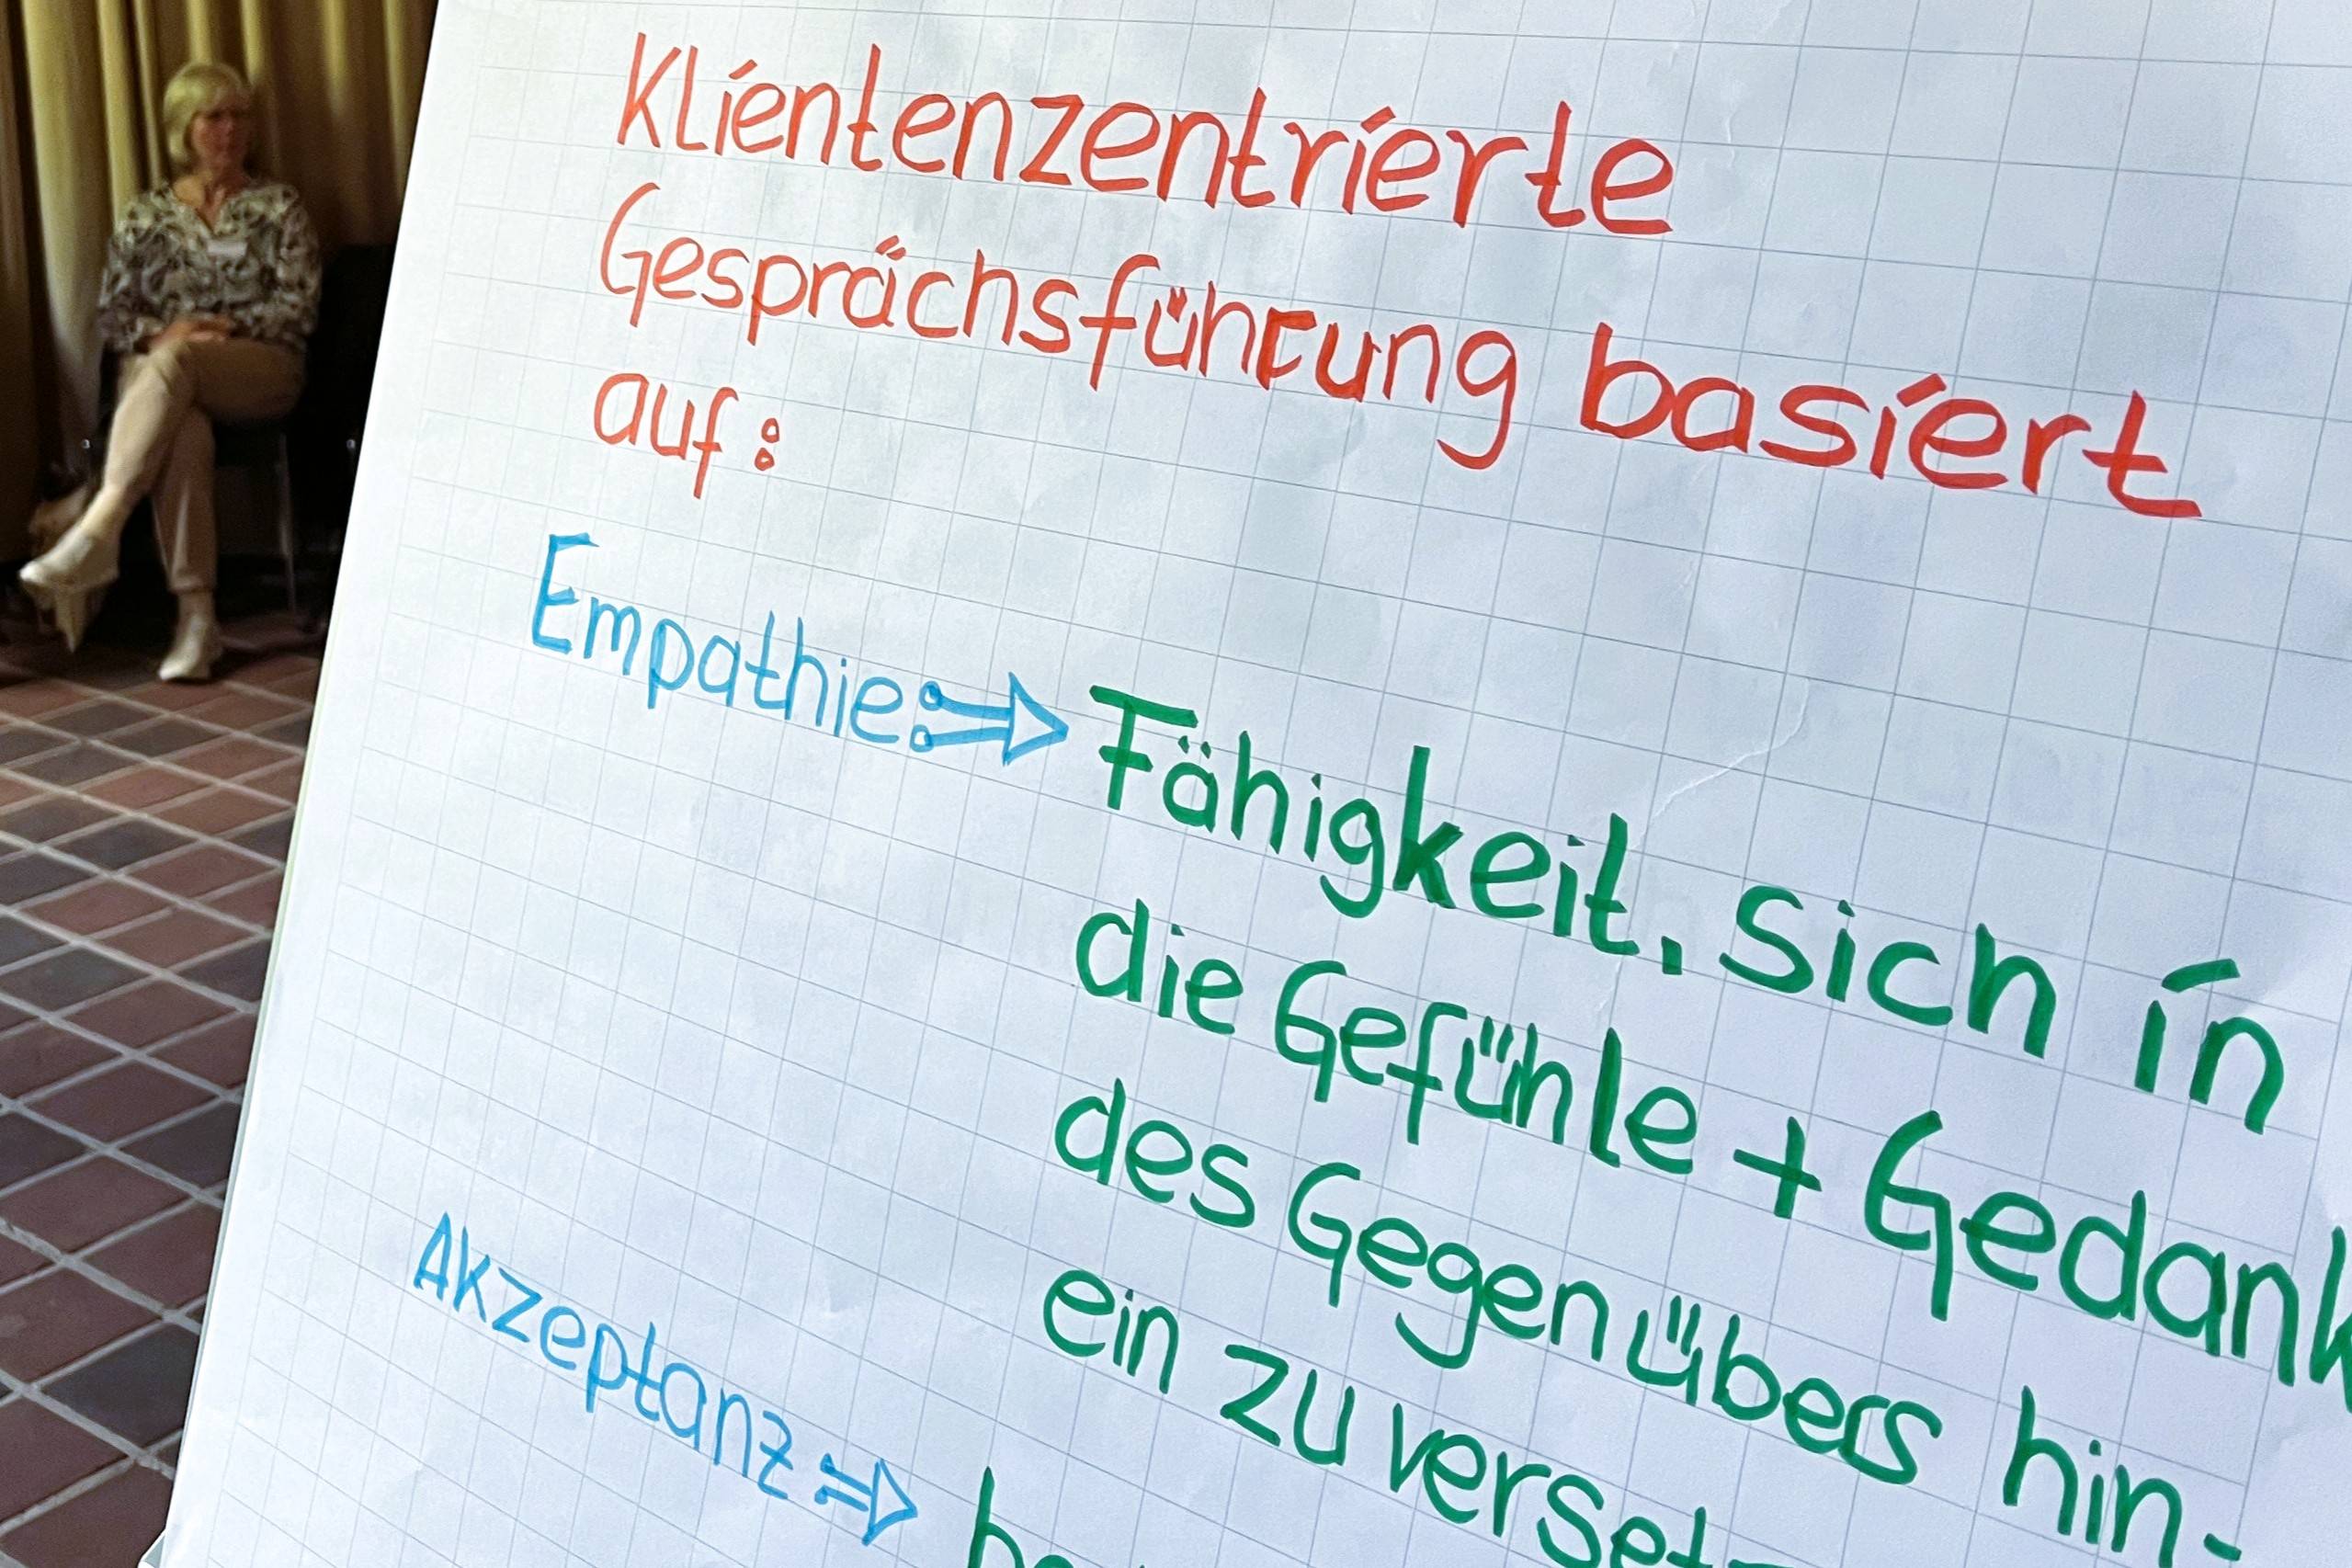 Klientenzentrierte
Gesprächsführung basiert
auf:
Empathie: ⇒ Fähigkeit, sich in
die Gefühle + Gedank
des Gegenübers hin-
ein zu verset
Akzeptanz ⇒